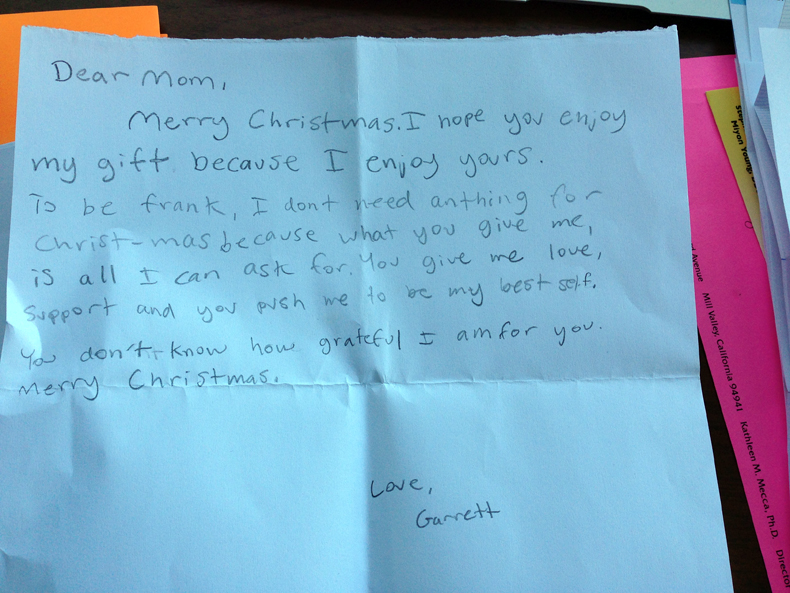 Dear Mom,
Merry Christmas. I hope you enjoy
my gift because I enjoy yours.
To be frank, I dont need anthing for
Christ-mas because what you give me,
is all I can ask for. You give me love,
support and you push me to be my best self.
You don't know how grateful I am for you.
Merry Christmas.
Love,
Garrett
Miyon Young,
Avenue Mill Valley, California 94941 Kathleen M. Mecca, Ph.D. Director